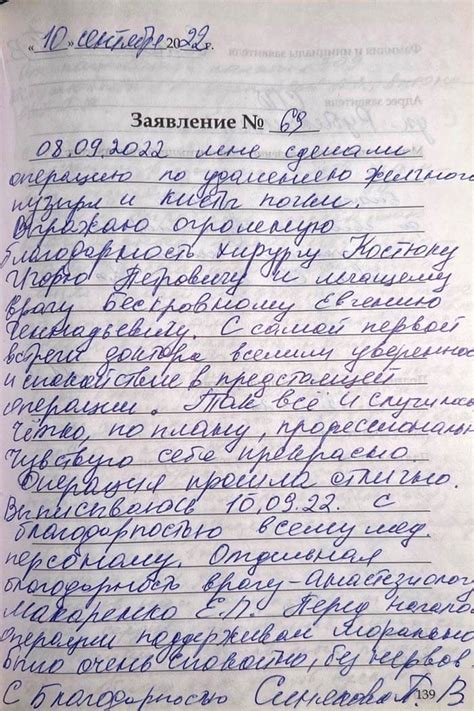 « 10 » сентября 2022 г.
Заявление № 69
08.09.2022 мне сделали
операцию по удалению желчного
пузыря и кисты почки.
Выражаю огромную
благодарность хирургу Костюку
Игорю Петровичу и лечащему
врачу Бескровному Евгению
Геннадьевичу. С самой первой
встречи доктора вселили увереннос
и спокойствие в предстоящей
операции. Так всё и случилос
Чётко, по плану, профессиональн
Чувствую себя прекрасно.
Операция прошла отлично.
Выписываюсь 10.09.22. С
благодарностью всему мед.
персоналу. Отдельная
благодарность врачу-анастезиолог
Макаренко Е.П. Перед начало
операции поддерживал морально
было очень спокойно, без нервов
С благодарностью В
139